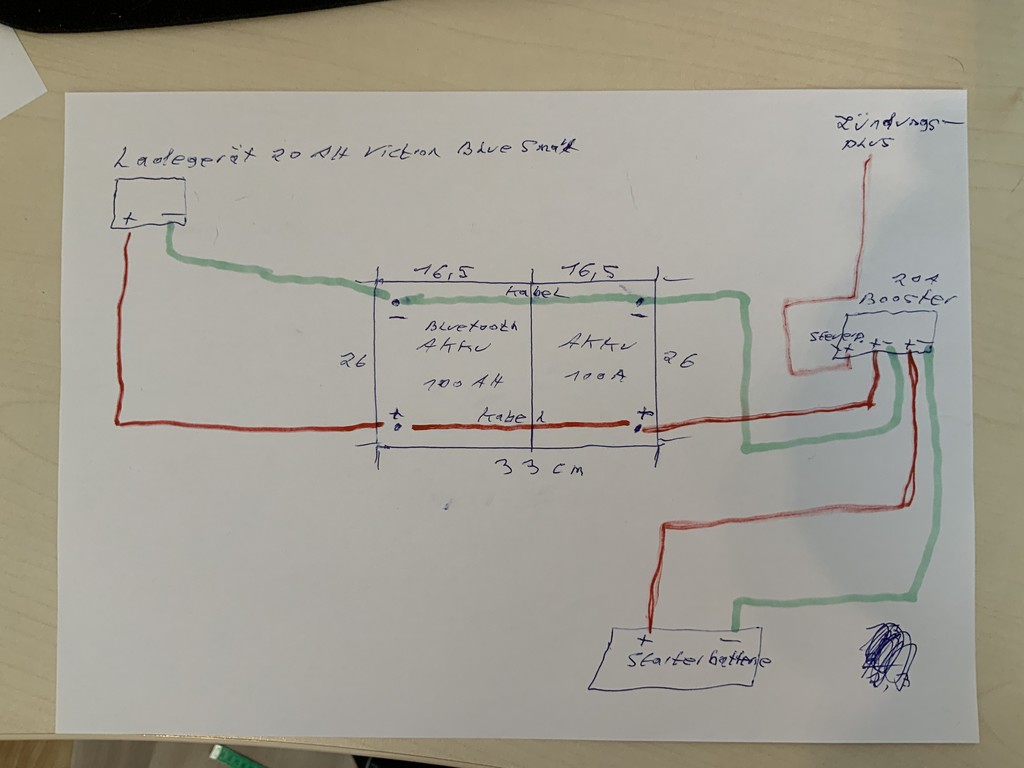 Zündungs-
plus
Ladegerät 20 AH Victron Blue Smart
+ −
16,5 16,5
Kabel
− −
Bluetooth
AKKU AKKU
100 AH 100A
26 26
+ +
Kabel
33 cm
20A
Booster
+ + − + −
+ −
Starterbatterie